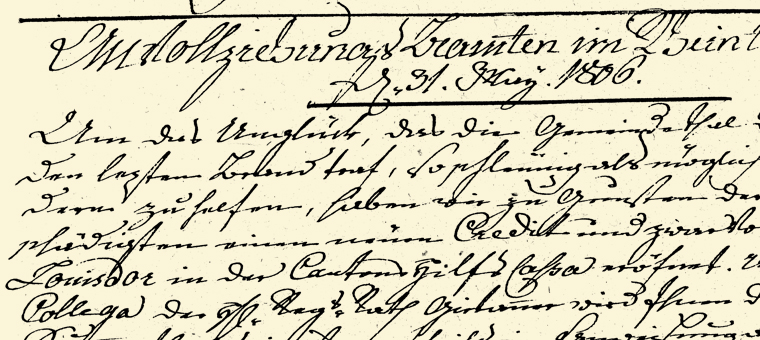 Vollziehungs Beamten im Rheint
D. 31. May. 1806.
Um das Unglück, das die Gemeinde Thal
den lezten Brand traf, so schleunig als möglich
dern zu helfen, haben wir zu Gunsten der
schädigten einen neüen Credit und zwar vo
Louisdor in der Cantons Hilfs Cassa eröfnet.
Collega der Reg.s Rath wird Ihnen d